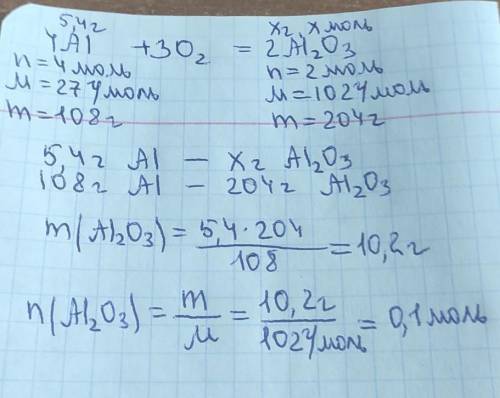 5,4г x г, x моль
4Al + 3O₂ = 2Al₂O₃
n = 4 моль n = 2 моль
M = 27 г/моль M = 102 г/моль
m = 108 г m = 204 г
5,4 г Al — x г Al₂O₃
108 г Al — 204 г Al₂O₃
m(Al₂O₃) = 5,4 · 204 / 108 = 10,2 г
n(Al₂O₃) = m / M = 10,2 г / 102 г/моль = 0,1 моль